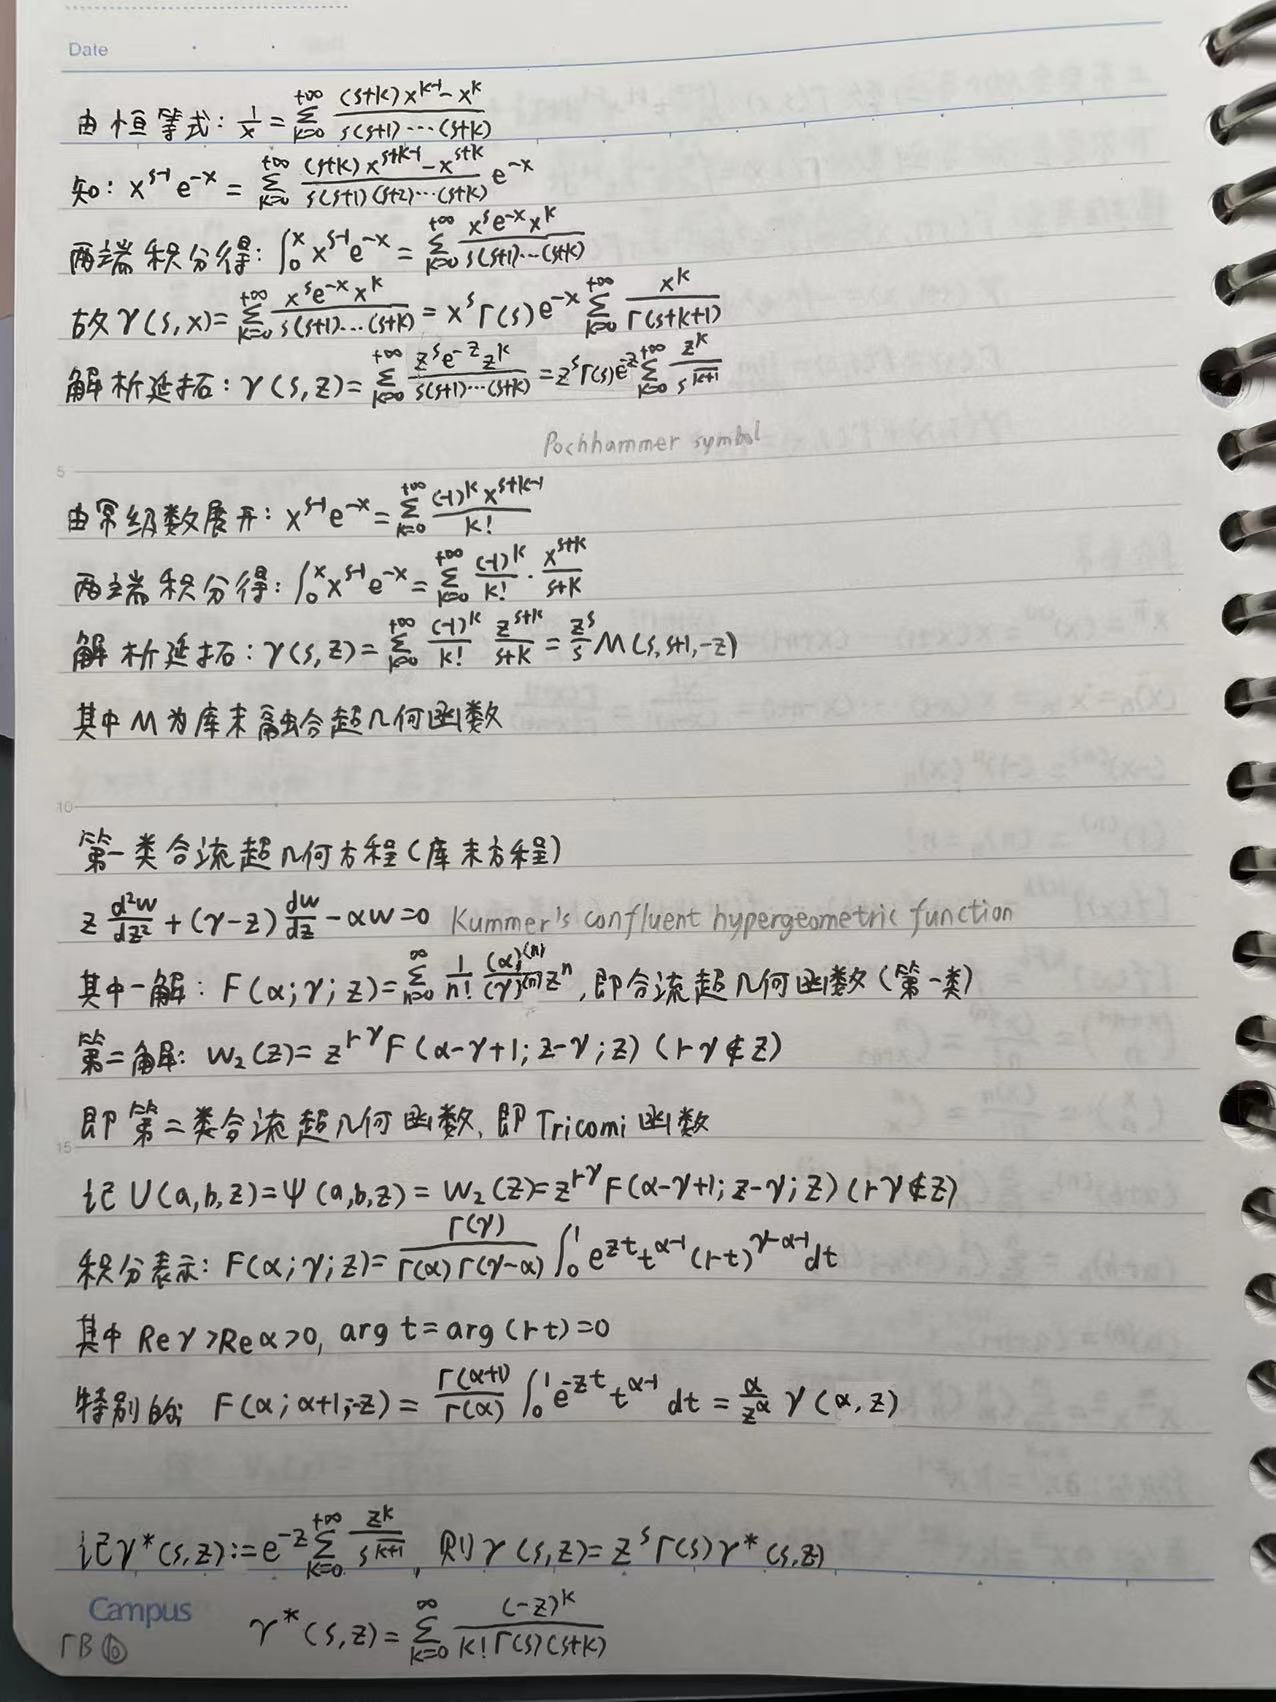 Date
由恒等式: 1/x = ∑_{k=0}^{+∞} ((s+k)x^{k-1} - x^k)/(s(s+1)⋯(s+k))
知: x^{s-1}e^{-x} = ∑_{k=0}^{+∞} ((s+k)x^{s+k-1} - x^{s+k})/(s(s+1)(s+2)⋯(s+k)) e^{-x}
两端积分得: ∫_0^x x^{s-1}e^{-x} = ∑_{k=0}^{+∞} (x^s e^{-x} x^k)/(s(s+1)⋯(s+k))
故 γ(s,x) = ∑_{k=0}^{+∞} (x^s e^{-x} x^k)/(s(s+1)⋯(s+k)) = x^s Γ(s) e^{-x} ∑_{k=0}^{+∞} x^k/Γ(s+k+1)
解析延拓: γ(s,z) = ∑_{k=0}^{+∞} (z^s e^{-z} z^k)/(s(s+1)⋯(s+k)) = z^s Γ(s) e^{-z} ∑_{k=0}^{+∞} z^k/s^{\overline{k+1}}
Pochhammer symbol
5
由幂级数展开: x^{s-1}e^{-x} = ∑_{k=0}^{+∞} ((-1)^k x^{s+k-1})/k!
两端积分得: ∫_0^x x^{s-1}e^{-x} = ∑_{k=0}^{+∞} (-1)^k/k! · x^{s+k}/(s+k)
解析延拓: γ(s,z) = ∑_{k=0}^{+∞} (-1)^k/k! z^{s+k}/(s+k) = z^s/s M(s,s+1,-z)
其中M为库末融合超几何函数
10
第一类合流超几何方程(库末方程)
z d²w/dz² + (γ-z) dw/dz - αw = 0 Kummer's confluent hypergeometric function
其中一解: F(α;γ;z) = ∑_{n=0}^{∞} 1/n! (α)^{(n)}/(γ)^{(n)} z^n, 即合流超几何函数(第一类)
第二解: w₂(z) = z^{1-γ} F(α-γ+1; 2-γ; z) (1-γ∉Z)
即第二类合流超几何函数, 即Tricomi函数
15
记 U(a,b,z) = Ψ(a,b,z) = w₂(z) = z^{1-γ} F(α-γ+1; 2-γ; z) (1-γ∉Z)
积分表示: F(α;γ;z) = Γ(γ)/(Γ(α)Γ(γ-α)) ∫_0^1 e^{zt} t^{α-1} (1-t)^{γ-α-1} dt
其中 Reγ>Reα>0, arg t = arg(1-t) = 0
特别的: F(α;α+1;-z) = Γ(α+1)/Γ(α) ∫_0^1 e^{-zt} t^{α-1} dt = α/z^α γ(α,z)
记 γ*(s,z) := e^{-z} ∑_{k=0}^{+∞} z^k/s^{\overline{k+1}}, 则 γ(s,z) = z^s Γ(s) γ*(s,z)
Campus
γ*(s,z) = ∑_{k=0}^{∞} (-z)^k/(k! Γ(s)(s+k))
ΓB⑩